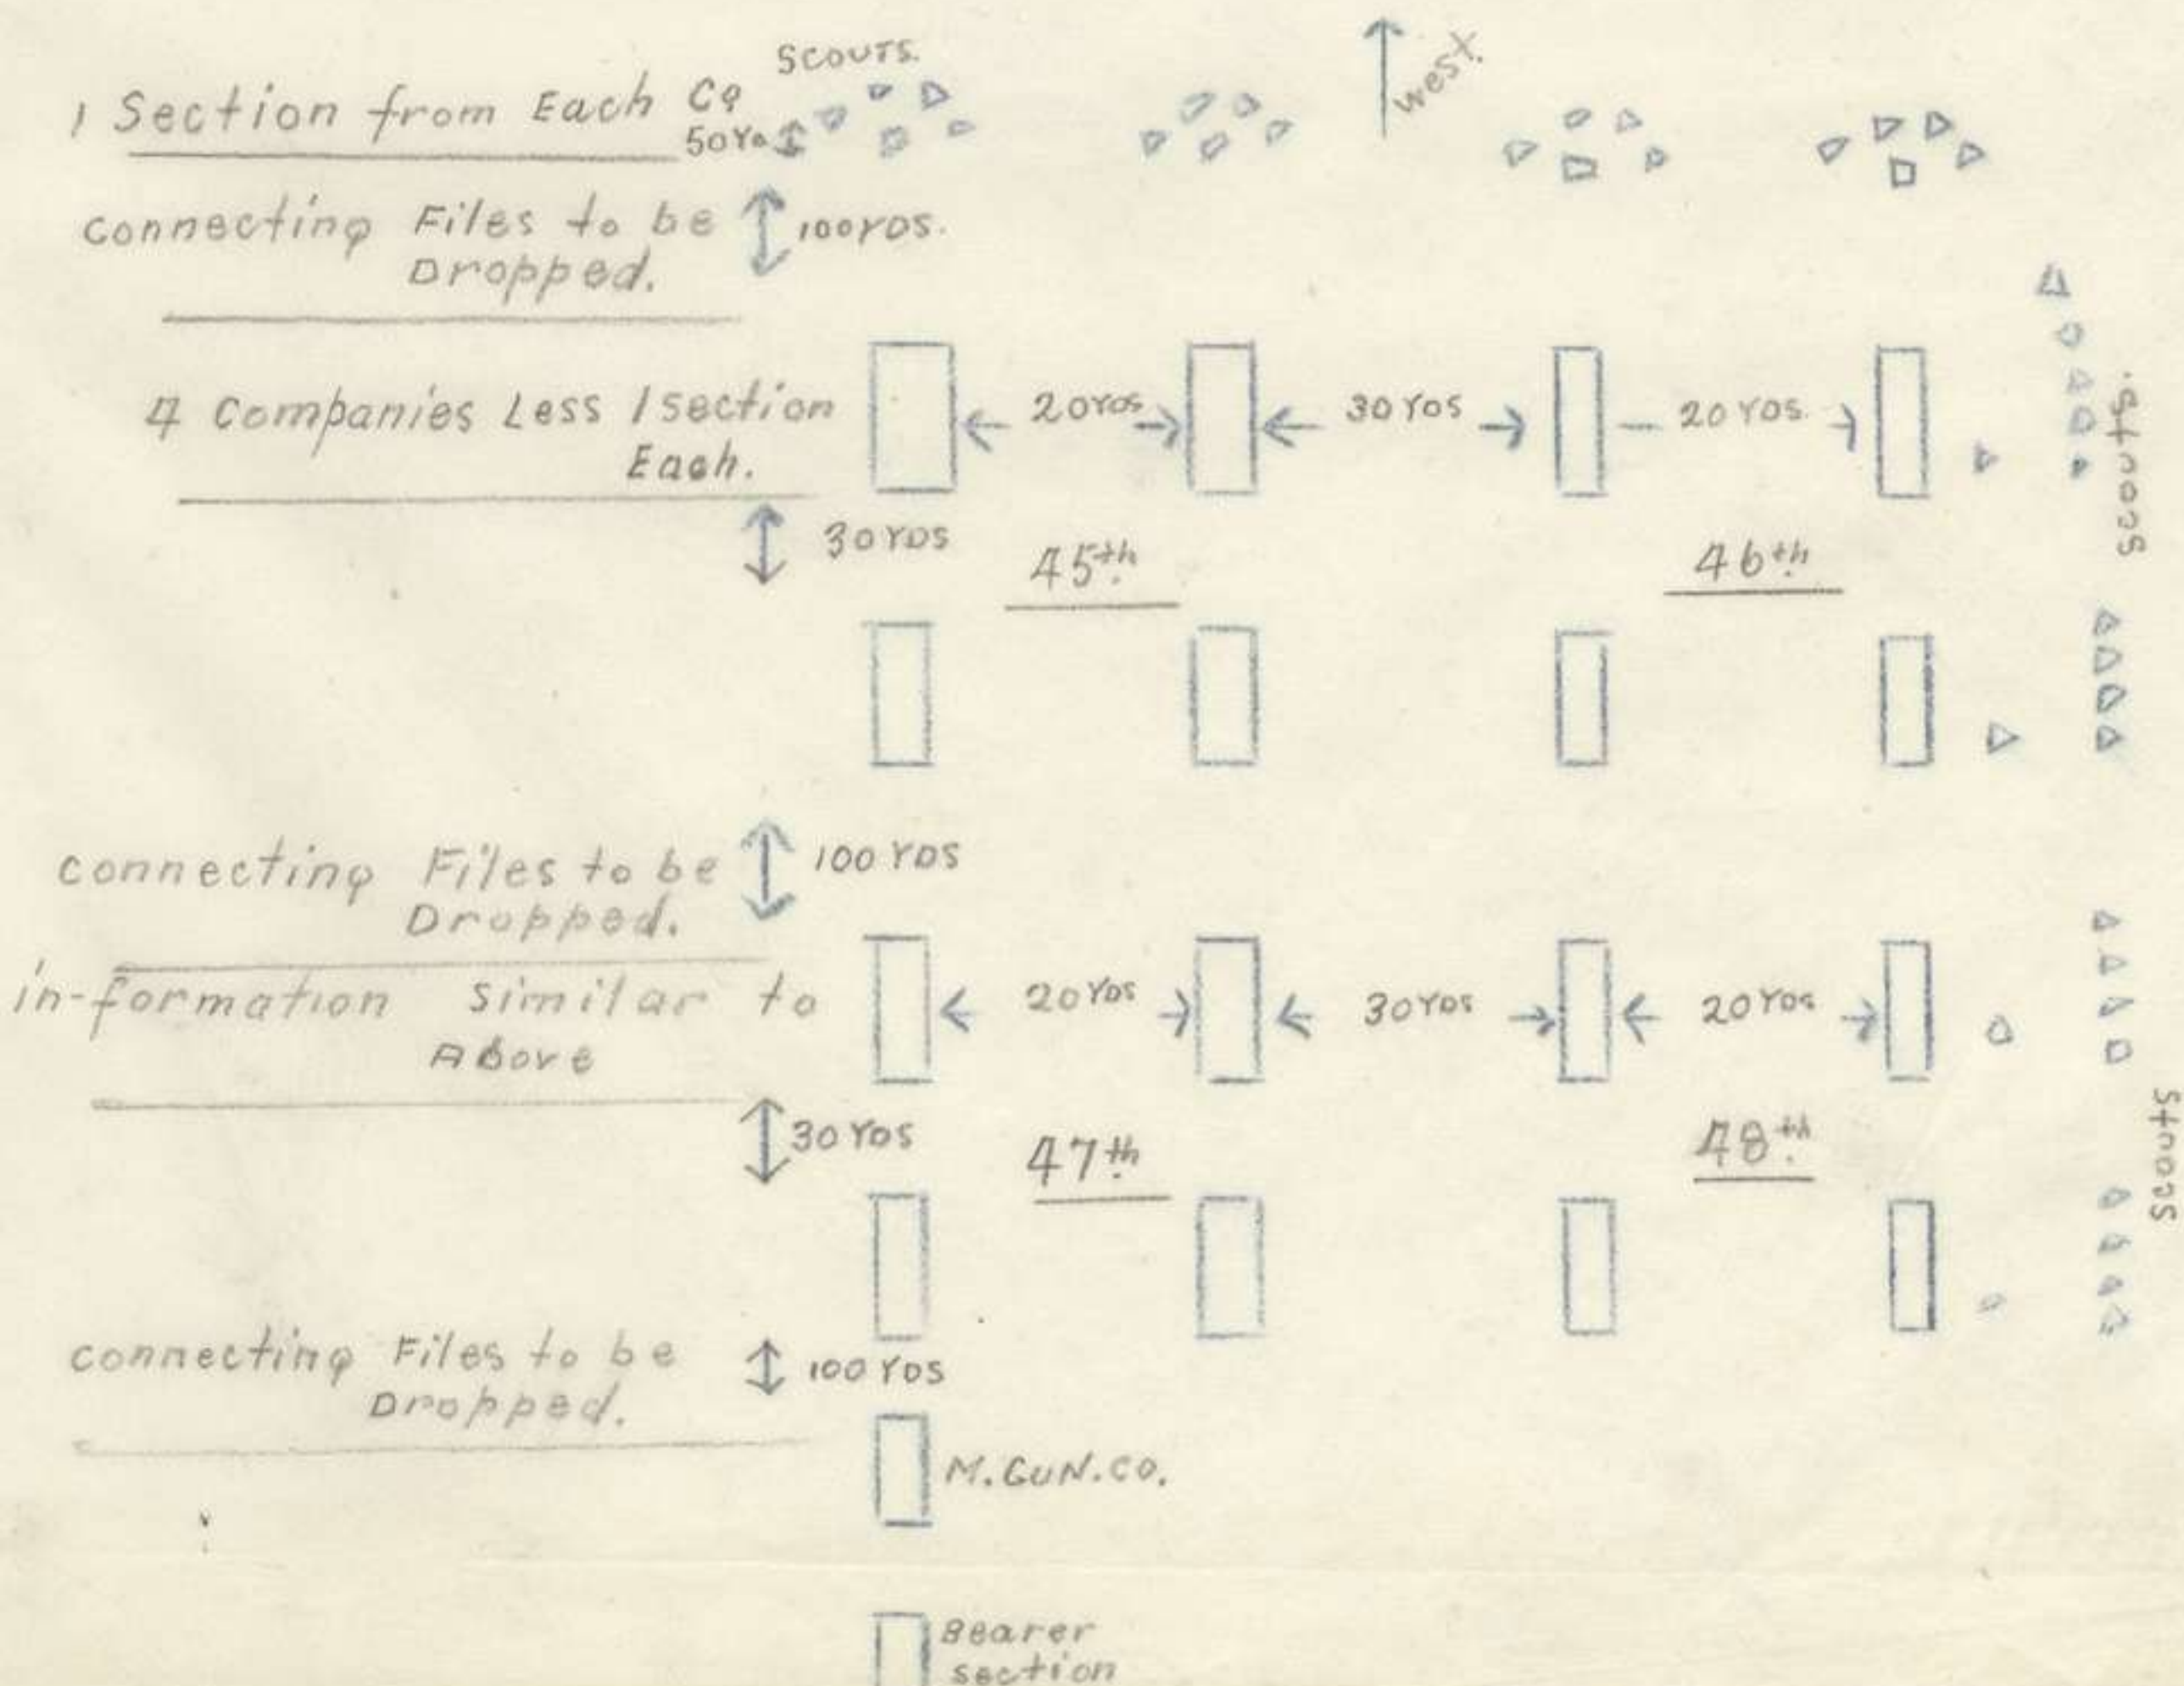 SCOUTS.
West.
1 Section from Each Co
50 Yds
connecting Files to be
Dropped.
100 YDS.
4 Companies Less 1 section
Each.
20 YDS
30 YDS
20 YDS.
Scouts.
30 YDS
45th.
46th.
connecting Files to be
Dropped.
100 YDS
in-formation similar to
Above
20 YDS
30 YDS
20 YDS
30 YDS
47th.
48th.
Scouts
connecting Files to be
Dropped.
100 YDS
M. GUN. CO.
Bearer
section